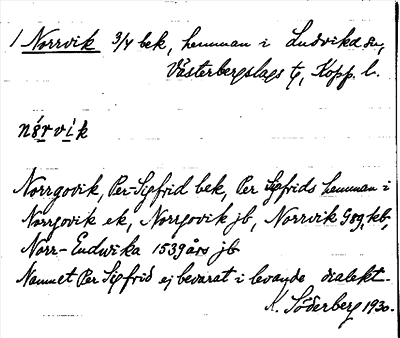 1 Norrvik 3/4 bek, hemman i Ludvika sn,
Västerbergslags tg, Kopp. l.
nórvik
Norrgovik, Per-Sigfrid bek, Per Sigfrids hemman i
Norrgovik ek, Norrgovik jb, Norrvik G89, kb,
Norr-Eudwika 1539 års jb
Namnet Per Sigfrid ej bevarat i levande dialekt.
K. Söderberg 1930.